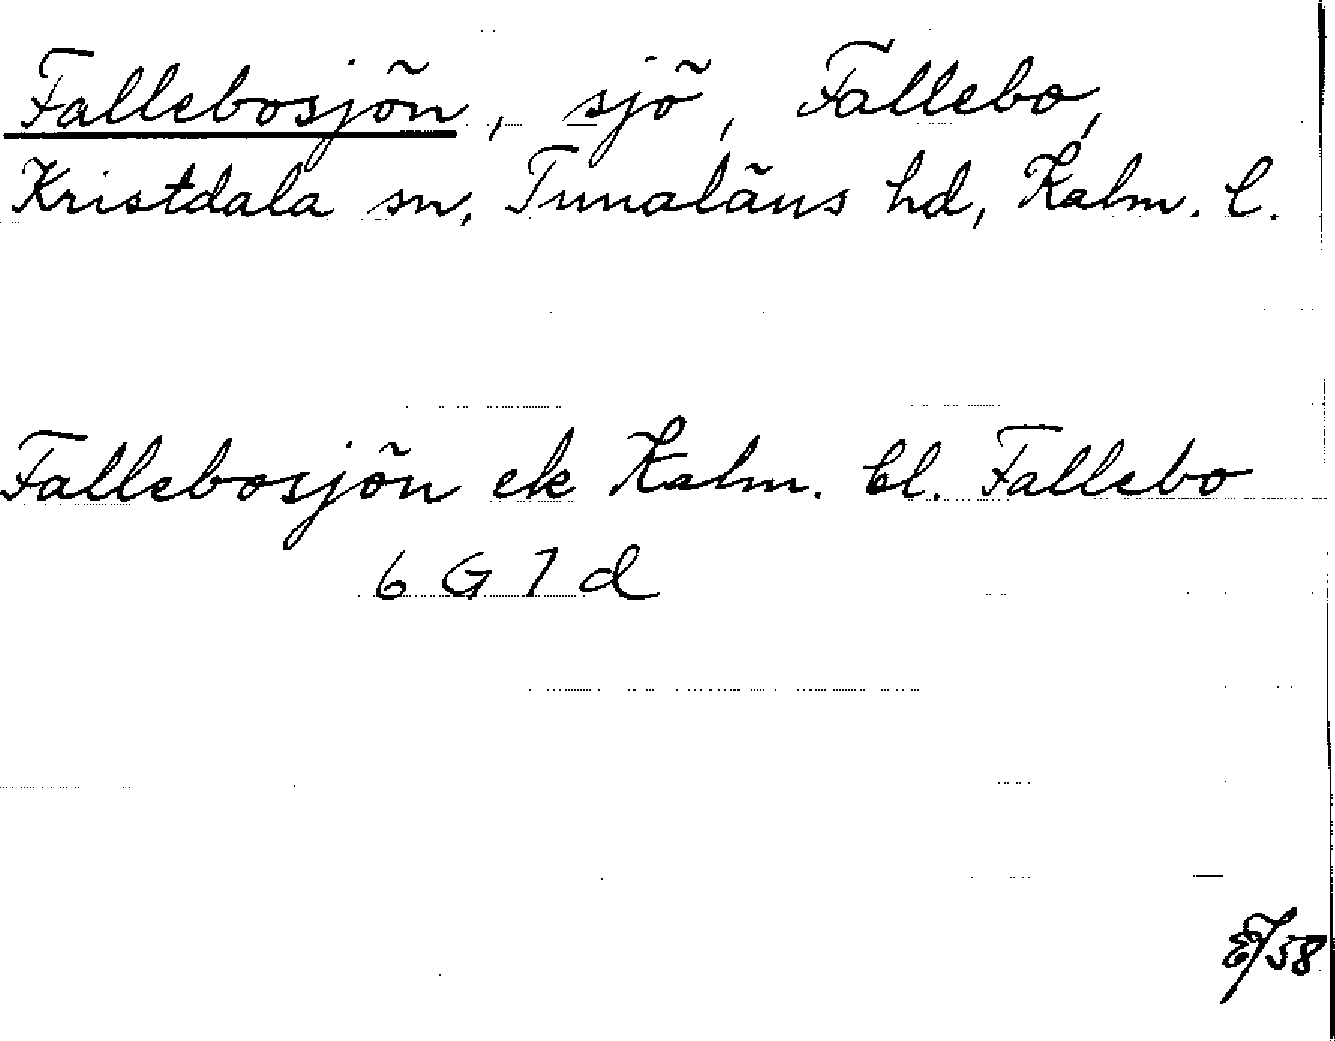 Fallebosjön, sjö, Fallebo,
Kristdala sn, Tunaläns hd, Kalm. l.
Fallebosjön ek Kalm. bl. Fallebo
6 G 7 d
/58